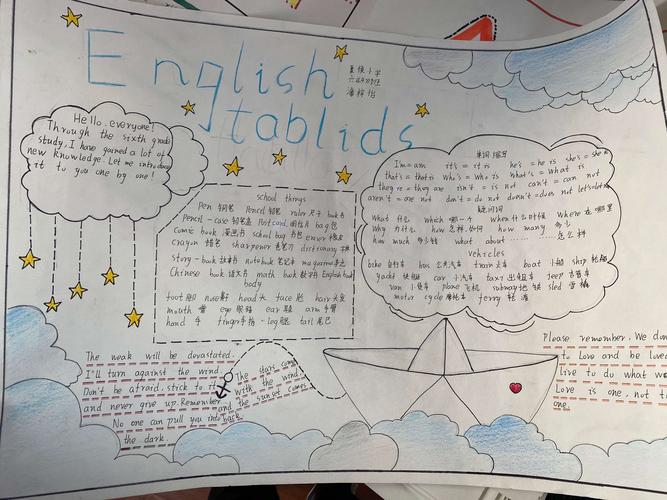 English
tablids
小学
Hello. everyone!
Through the sixth grade
study, I have gained a lot of
new knowledge. Let me introduce
it to you one by one!
school things
pen 钢笔 pencil 铅笔 ruler 尺子 book 书
pencil-case 铅笔盒 postcard 明信片 bag 包
comic book 漫画书 school bag 书包 eraser 橡皮
crayon 蜡笔 sharpener 卷笔刀 dictionary
story-book 故事书 notebook 笔记本 magazine 杂志
Chinese book 语文书 math book 数学书 English book
body
foot 脚 nose 鼻 head 头 face 脸 hair 头发
mouth 嘴 eye 眼睛 ear 耳朵 arm 手臂
hand 手 finger 手指 leg 腿 tail 尾巴
单词缩写
I'm=am it's=it is he's=he is she's=she is
that's=that is who's=who is what's=what is
they're=they are isn't=is not can't=can not
aren't=are not don't=do not doesn't=does not let's=let us
疑问词
what 什么 which 哪一个 when 什么时候 where 在哪里
why 为什么 how 怎样,如何 how many 多少
how much 多少钱 what about ...... 怎么样
vehicles
bike 自行车 bus 公共汽车 train 火车 boat 小船 ship 轮船
yacht 快艇 car 小汽车 taxi 出租车 jeep 吉普车
van 小货车 plane 飞机 subway 地铁 sled 雪橇
motor cycle 摩托车 ferry 轮渡
The weak will be devastated.
I'll turn against the wind.
Don't be afraid. stick to it
and never give up. Remember
No one can pull you into
the dark.
The stars come
with the wind,
and the sunset comes
back.
Please remember. We don
to Love and be love
live to do what we
Love is one, not t
one.